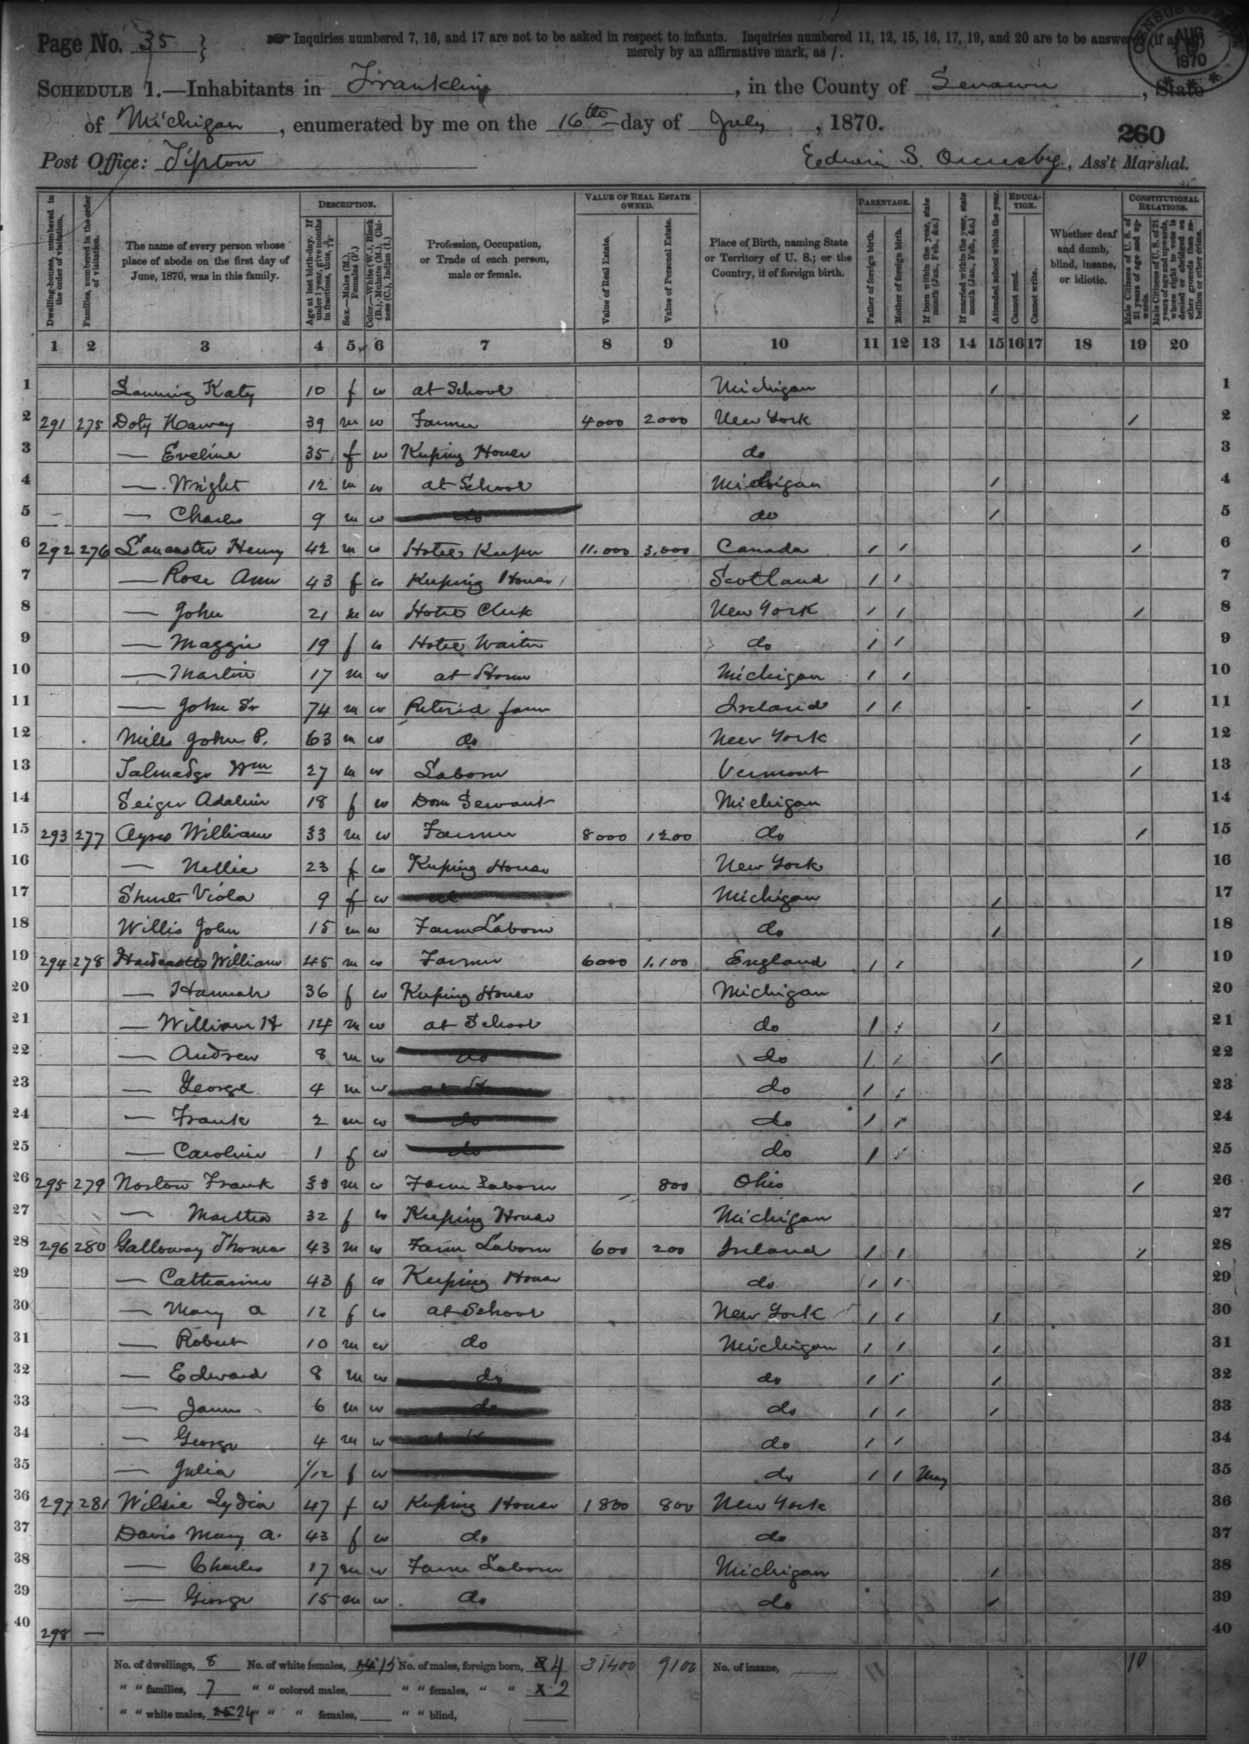 Page No. 35 }
☞ Inquiries numbered 7, 16, and 17 are not to be asked in respect to infants. Inquiries numbered 11, 12, 15, 16, 17, 19, and 20 are to be answered (if at all)
merely by an affirmative mark, as /.
AUG
1870
SCHEDULE 1.—Inhabitants in Franklin, in the County of Lenawee, State
of Michigan, enumerated by me on the 16th day of July, 1870.
260
Post Office: Tipton
Edwin S. Ormsby, Ass't Marshal.
Dwelling-houses, numbered in the order of visitation.
Families, numbered in the order of visitation.
The name of every person whose place of abode on the first day of June, 1870, was in this family.
DESCRIPTION.
Age at last birth-day.
Sex.—Males (M.), Females (F.)
Profession, Occupation, or Trade of each person, male or female.
VALUE OF REAL ESTATE OWNED.
Value of Real Estate.
Value of Personal Estate.
Place of Birth, naming State or Territory of U. S.; or the Country, if of foreign birth.
PARENTAGE.
Father of foreign birth.
Mother of foreign birth.
If born within the year, state month (Jan., Feb., &c.)
If married within the year, state month (Jan., Feb., &c.)
Attended school within the year.
EDUCATION.
Cannot read.
Cannot write.
Whether deaf and dumb, blind, insane, or idiotic.
CONSTITUTIONAL RELATIONS.
1 2 3 4 5 6 7 8 9 10 11 12 13 14 15 16 17 18 19 20
1 Katy 10 f w at School Michigan / 1
2 291 275 Doty Harvey 39 m w Farmer 4000 2000 New York / 2
3 — Eveline 35 f w Keeping House do 3
4 — Wright 12 m w at School Michigan / 4
5 — Charles 9 m w do do / 5
6 292 276 Lancaster Henry 42 m w Hotel Keeper 11.000 3,000 Canada / / / 6
7 — Rose Ann 43 f w Keeping House Scotland / / 7
8 — John 21 m w Hotel Clerk New York / / / 8
9 — Maggie 19 f w Hotel Waiter do / / 9
10 — Martin 17 m w at Home Michigan / / 10
11 — John Sr 74 m w Retired farm Ireland / / / 11
12 Miles John P. 63 m w do New York / 12
13 Talmadge Wm 27 m w Labor Vermont / 13
14 Seiger Adaline 18 f w Dom Servant Michigan 14
15 293 277 Ayres William 33 m w Farmer 8000 1200 do / 15
16 — Nellie 23 f w Keeping House New York 16
17 Viola 9 f w at Michigan / 17
18 Willis John 15 m w Farm Labor do / 18
19 294 278 William 45 m w Farmer 6000 1.100 England / / / 19
20 — Hannah 36 f w Keeping House Michigan 20
21 — William H 14 m w at School do / / / 21
22 — Andrew 8 m w do do / / / 22
23 — George 4 m w at Home do / / 23
24 — Frank 2 m w do do / / 24
25 — Caroline 1 f w do do / / 25
26 295 279 Norton Frank 33 m w Farm Labor 800 Ohio / 26
27 — Martha 32 f w Keeping House Michigan 27
28 296 280 Galloway Thomas 43 m w Farm Labor 600 200 Ireland / / / 28
29 — Catharine 43 f w Keeping House do / / 29
30 — Mary A 12 f w at School New York / / / 30
31 — Robert 10 m w do Michigan / / / 31
32 — Edward 8 m w do do / / / 32
33 — James 6 m w do do / / / 33
34 — George 4 m w at H do / / 34
35 — Julia 1/12 f w do / / May 35
36 297 281 Lydia 47 f w Keeping House 1800 800 New York 36
37 Davis Mary A. 43 f w do do 37
38 — Charles 17 m w Farm Labor Michigan / 38
39 — George 15 m w do do / 39
40 298 — 40
No. of dwellings, 8 No. of white females, 15 No. of males, foreign born, 4 31400 9100 No. of insane, 10
" " families, 7 " " colored males, " " females, " " 2
" " white males, 24 " " females, " " blind,